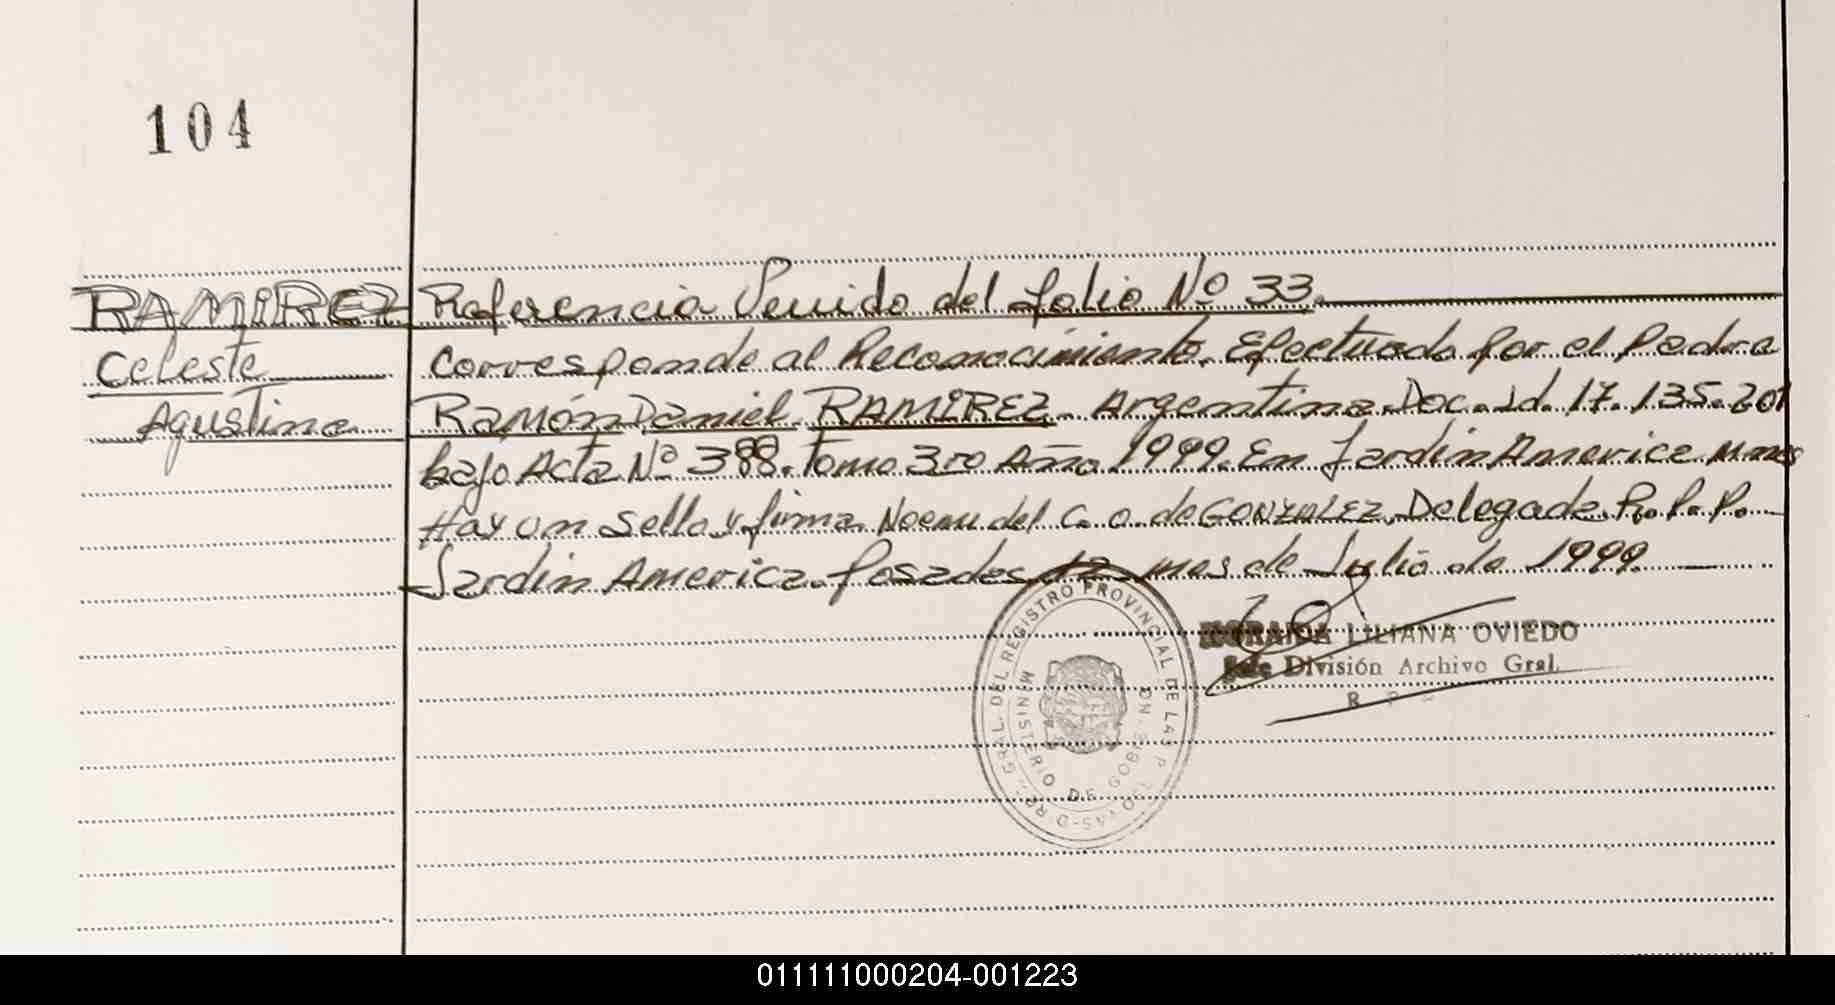 104
RAMIREZ
Celeste
Agustina
Referencia Venido del folio Nº 33.
Corresponde al Reconocimiento. Efectuado por el Padre
Ramón Daniel RAMIREZ. Argentino. Doc. Id. 17.135.201
bajo Acta Nº 388. Tomo 3ro Año 1999. En Jardín America Mnes
Hay un sello y firma Noemi del C. O. de GONZALEZ, Delegada R.P.P.
Jardín America. Posadas, 12 mes de Julio de 1999.
LILIANA OVIEDO
Jefe División Archivo Gral.
R P
GRAL. DEL REGISTRO PROVINCIAL DE LAS P
MINISTERIO DE GOBIE
011111000204-001223